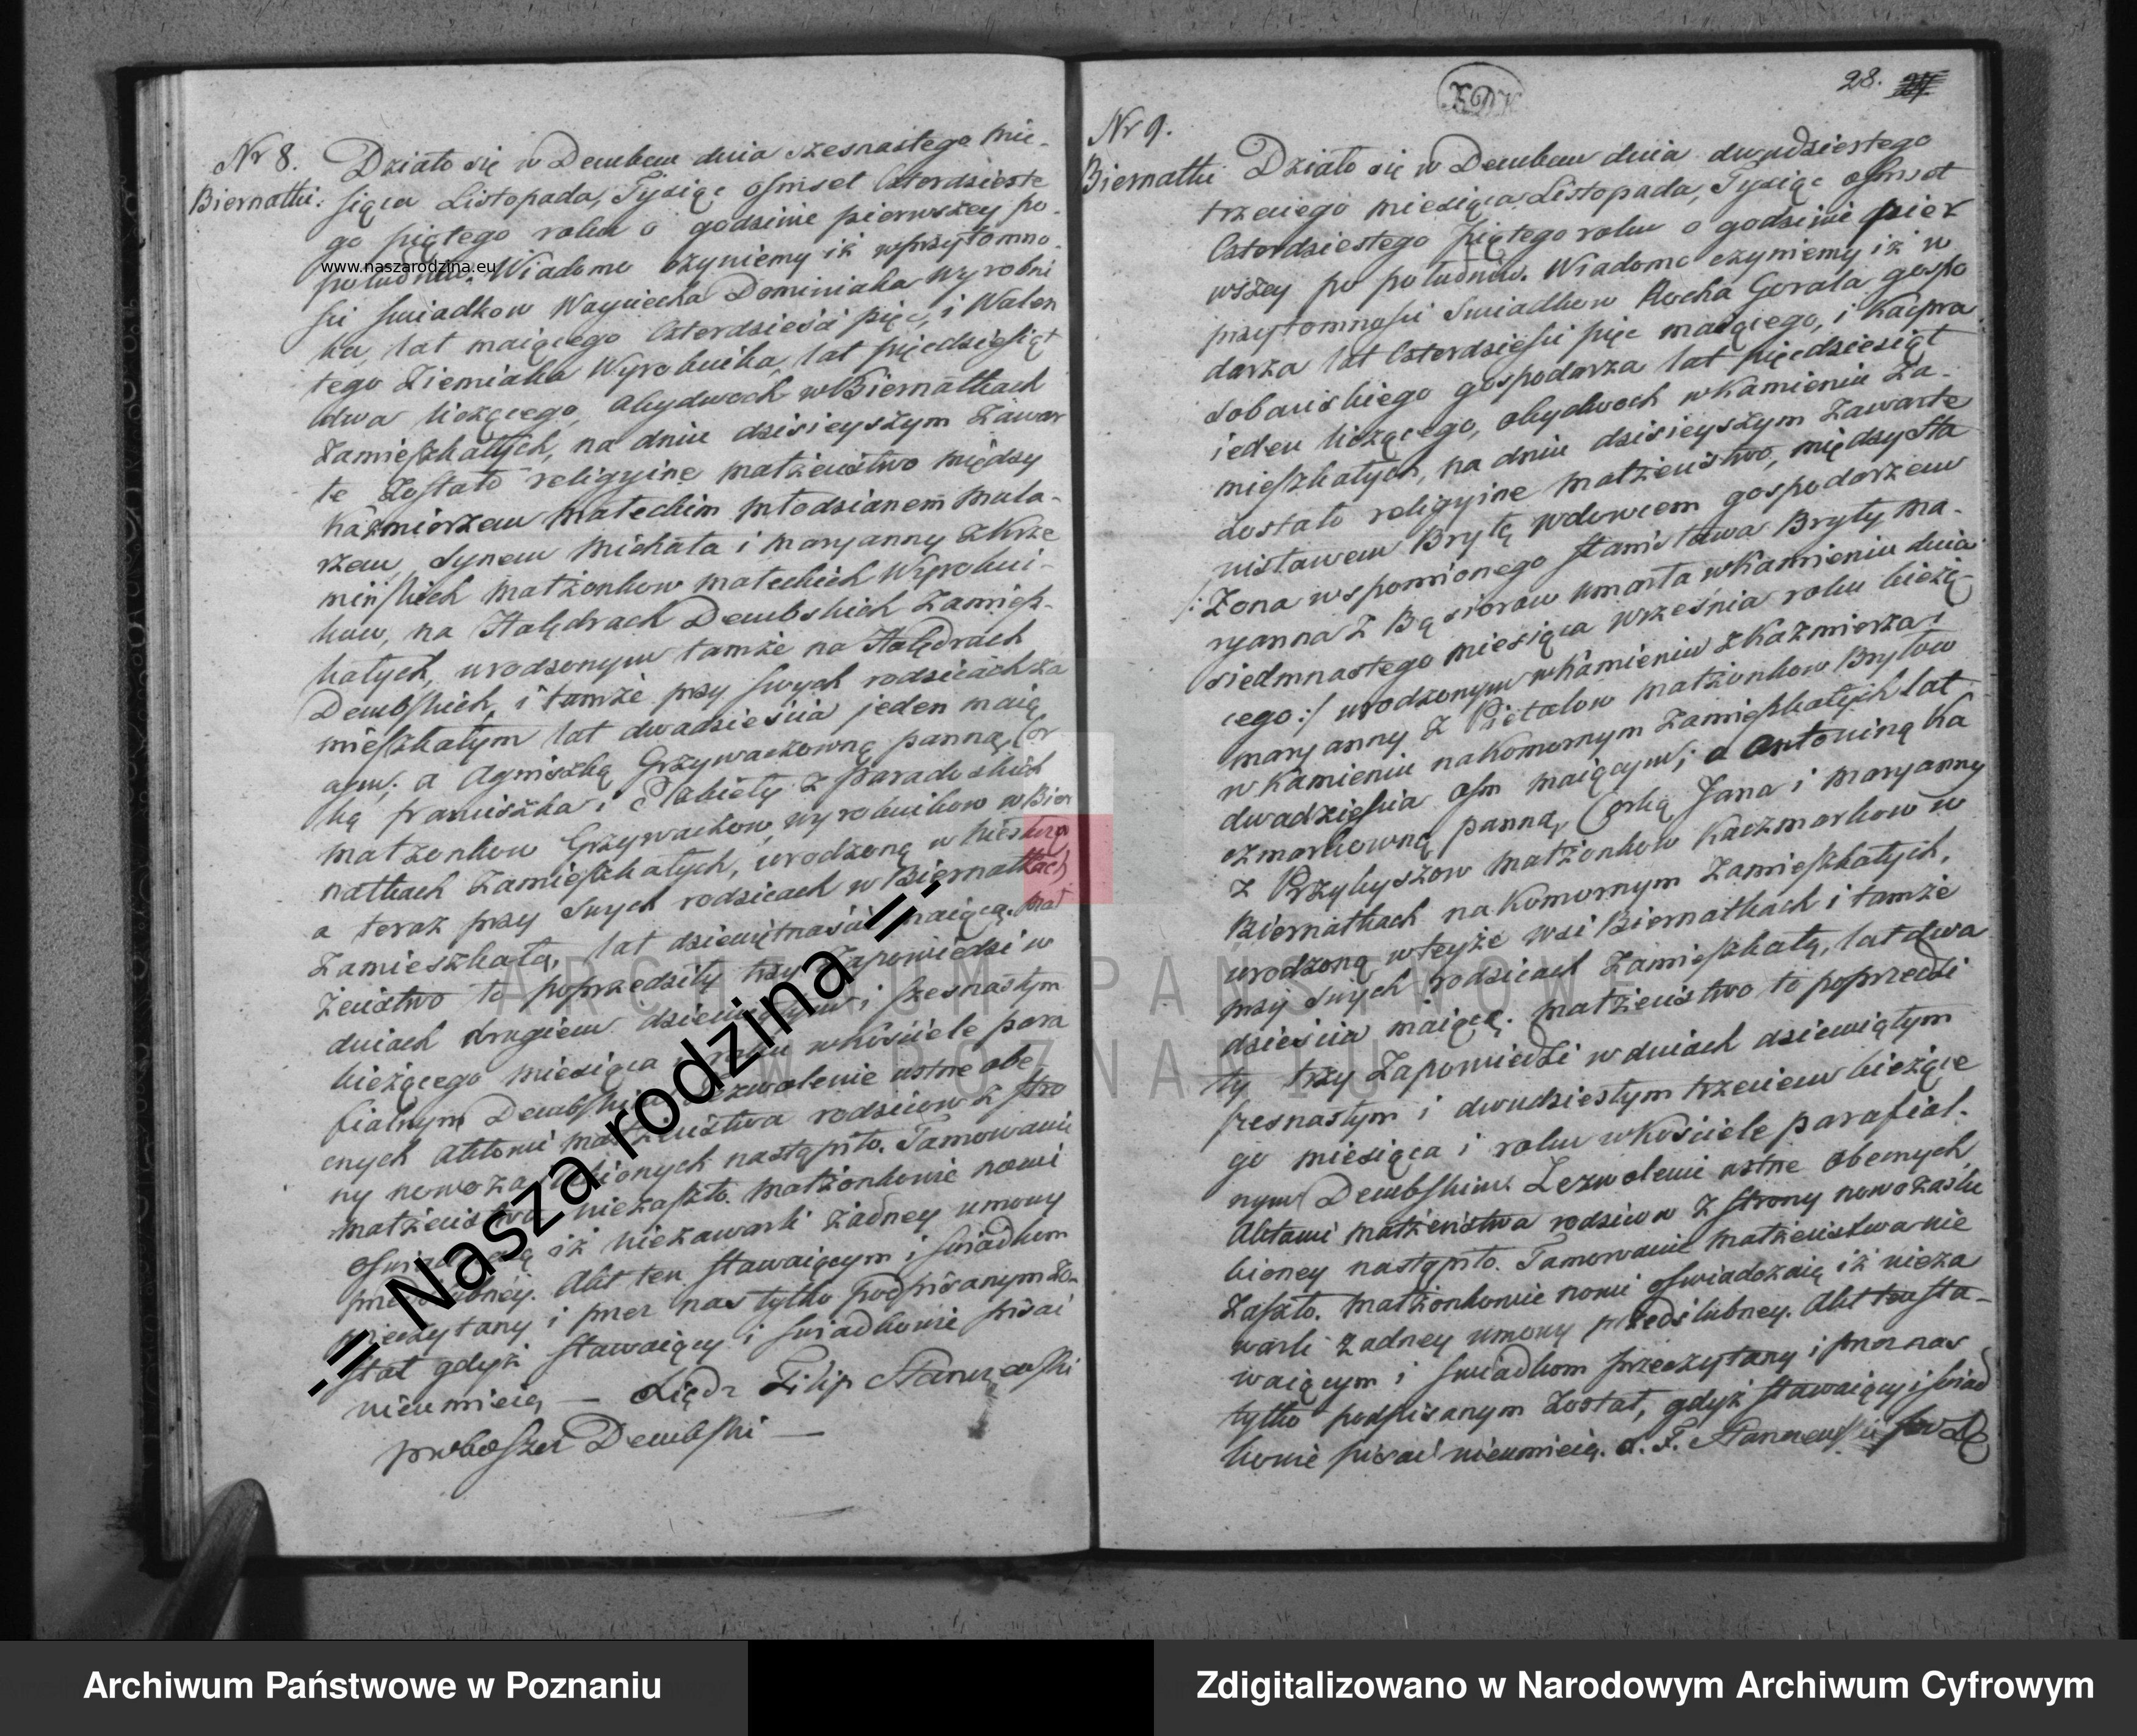 Nr 8.
Biernatki.
Działo się w Dembem dnia szesnastego mie-
siąca Listopada, Tysiąc ośmset Czterdzieste
go piątego roku o godzinie pierwszey po-
południu. Wiadomo czyniemy iż wprzytomno-
ści świadkow Woyciecha Dominiaka Wyrobni
ka, lat maiącego Czterdzieści pięć, i Walen
tego Ziemiaka Wyrobnika lat pięćdziesiąt
dwa liczącego, obydwoch w Biernatkach
Zamieszkałych, na dniu dzisieyszym Zawar
te Zostało religyine małżeństwo między
Kaźmierzem Małeckim młodzianem mula-
rzem, Synem Michała i Maryanny z Krze
mińskich małżonkow Małeckich Wyrobni-
kow, na Holędrach Dembskich Zamiesz-
kałych, urodzonym tamże na Holędrach
Dembskich, i tamże przy swych rodzicach za
mieszkałym lat dwadzieścia jeden maią
cym; a Agniszką Grzywaczowną panną, Cor
ką Franciszka i Elżbiety z Paradoskich
małżonkow Grzywaczow, wyrobnikow w Bier
natkach Zamieszkałych, urodzoną w
a teraz przy swych rodzicach w Biernatkach
Zamieszkałą, lat dziewiętnaście maiącą. Mał
żeństwo to poprzedziły trzy Zapowiedzi w
dniach drugiem dziewiątym i szesnastym
bieżącego miesiąca i roku w kościele para
fialnym Dembskim. Zezwolenie ustne obe
cnych Aktowi małżeństwa rodzicow z stro
ny nowozaślubionych nastąpiło. Tamowanie
małżeństwa niezaszło. Małżonkowie nowi
oświadczaią iż niezawarli żadney umowy
przedślubney. Akt ten stawaiącym i świadkom
przeczytany i przez nas tylko podpisanym zo-
stał gdyż stawaiący i świadkowie pisać
nieumieią — Xiądz Filip
proboszcz Dembski —
28.
Nr 9.
Biernatki
Działo się w Dembem dnia dwudziestego
trzeciego miesiąca Listopada, Tysiąc ośmset
Czterdziestego piątego roku o godzinie pier
wszey po południu. Wiadomo czyniemy iż w
przytomności Swiadkow Rocha Gorala gospo
darza lat Czterdzieści pięć maiącego, i Kacpra
Sobańskiego gospodarza lat pięćdziesiąt
ieden liczącego, obydwoch w Kamieniu Za-
mieszkałych, na dniu dzisieyszym Zawarte
Zostało religyine małżeństwo, między Sta
nisławem Brytą wdowcem gospodarzem
/: Żona wspomionego Stanisława Bryty Ma-
ryanna z Bąsiorow umarła w Kamieniu dnia
siedmnastego miesiąca września roku bieżą
cego :/ urodzonym w Kamieniu z Kaźmierza i
Maryanny z Pietalow małżonkow Brytow
w Kamieniu na Komornym Zamieszkałych lat
dwadzieścia ośm maiącym; a Antoniną Ka
czmarkowną panną, Corką Jana i Maryanny
z Przybyszow małżonkow Kaczmarkow w
Biernatkach na Komornym Zamieszkałych,
urodzoną w teyże wsi Biernatkach i tamże
przy swych rodzicach Zamieszkałą, lat dwa
dzieścia maiącą. Małżeństwo to poprzedzi
ły trzy Zapowiedzi w dniach dziewiątym
szesnastym i dwudziestym trzeciem bieżące
go miesiąca i roku w kościele parafial-
nym Dembskim. Zezwolenie ustne obecnych
Aktowi małżeństwa rodzicow z strony nowozaślu
bioney nastąpiło. Tamowanie małżeństwa nie
Zaszło. Małżonkowie nowi oświadczaią iż nieza
warli żadney umowy przedślubney. Akt ten sta-
waiącym i świadkom przeczytany i przez nas
tylko podpisanym został, gdyż stawaiący i świad
kowie pisać nieumieią. X. F.
www.naszarodzina.eu
-=Nasza rodzina=-
ARCHIWUM PAŃSTWOWE
W POZNANIU
Archiwum Państwowe w Poznaniu
Zdigitalizowano w Narodowym Archiwum Cyfrowym